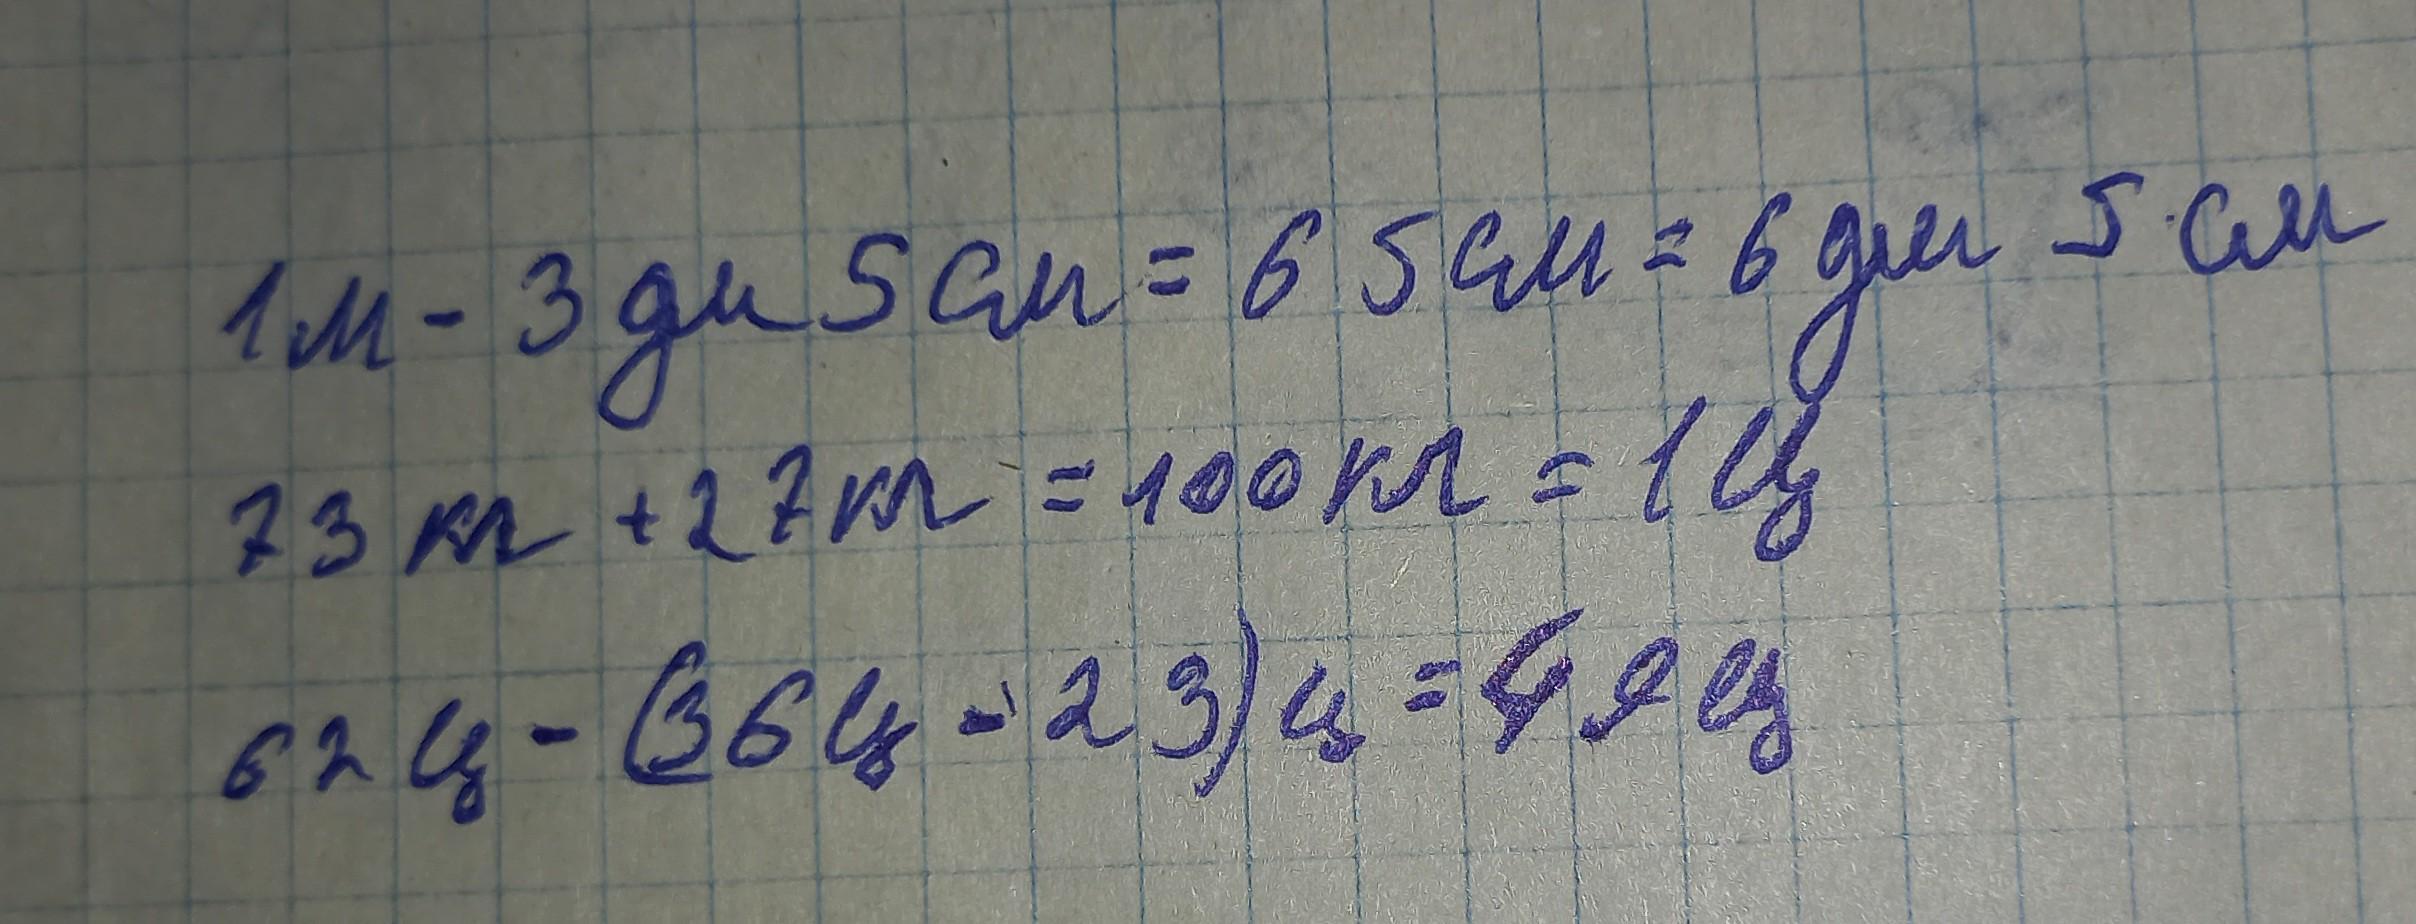 1м - 3 дм 5 см = 65 см = 6 дм 5 см
73 кг + 27 кг = 100 кг = 1 ц
62 ц - (36 ц - 23) ц = 49 ц